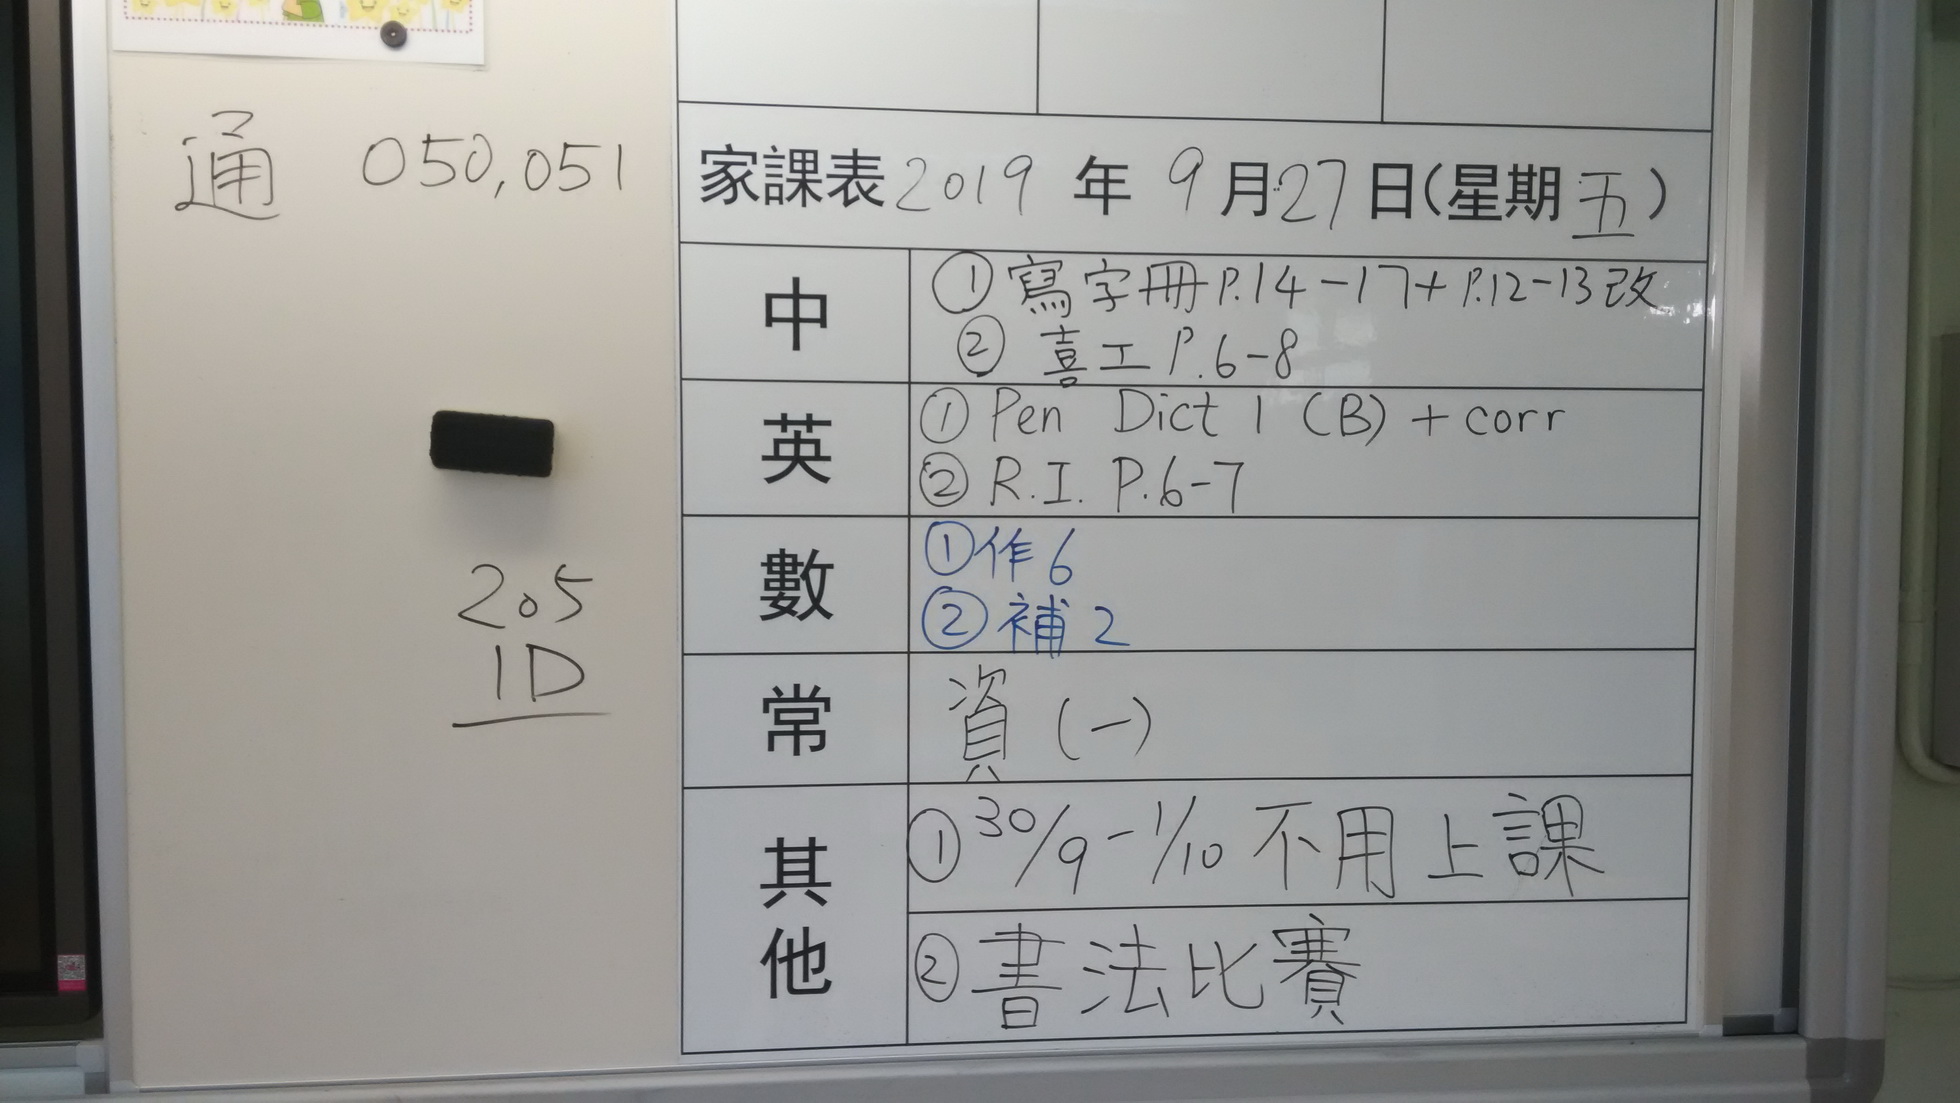 通 050,051
205
1D
家課表2019年9月27日(星期五)
中
① 寫字冊P.14-17+P.12-13改
② 喜工P.6-8
英
① Pen Dict 1 (B) + corr
② R.I. P.6-7
數
①作6
②補2
常
資(一)
其他
①30/9-1/10不用上課
②書法比賽